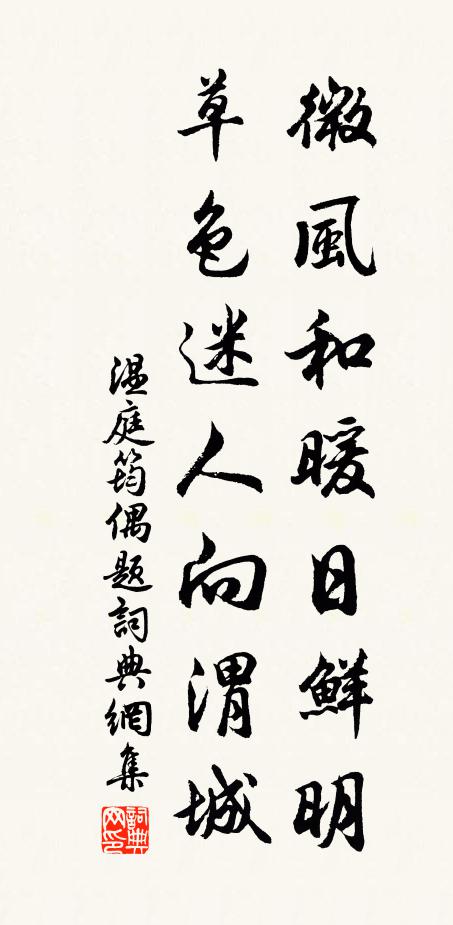 微風和暖日鮮明
草色迷人向渭城
温庭筠偶题詞典網集
詞典
网印